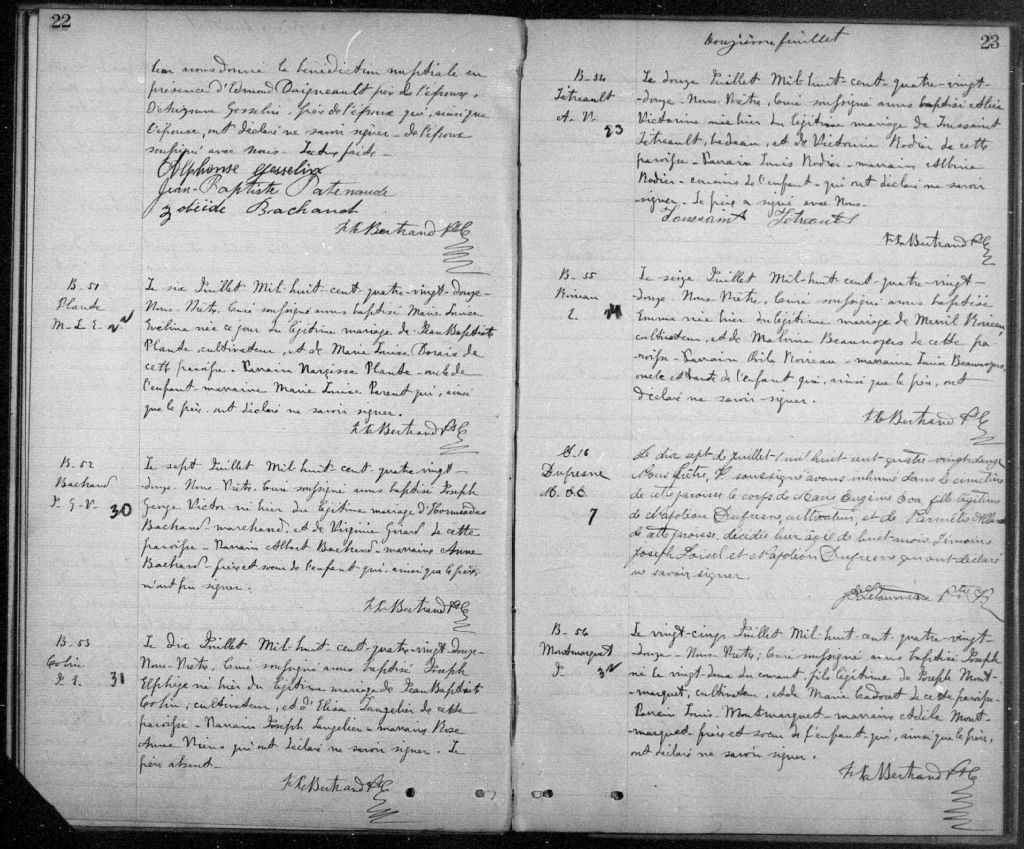 22
leur avons donné la bénédiction nuptiale en
présence d'Edmond Daigneault père de l'épouse,
Gosselin, père de l'époux qui, ainsi que
l'épouse, ont déclaré ne savoir signer - de l'époux
soussigné avec nous - Lecture faite -
Alphonse Gosselin
Jean-Baptiste Patenaude
Zobéide Bachand
Bertrand Ptr
B_51
Plante
M-L. E.
22
Le six Juillet Mil-huit-cent-quatre-vingt-douze-
Nous Prêtre, Curé soussigné avons baptisé Marie Louise
Evelina née ce jour du légitime mariage de Jean Baptiste
Plante, cultivateur, et de Marie Louise Dorais de
cette paroisse. Parrain Narcisse Plante - oncle de
l'enfant marraine Marie Louise Parent qui, ainsi
que le père, ont déclaré ne savoir signer.
Bertrand Ptr
B_52
Bachand
J. G-V.
30
Le sept Juillet Mil-huit-cent-quatre-vingt-
douze- Nous Prêtre, Curé soussigné avons baptisé Joseph
George Victor né hier du légitime mariage d'Hormisdas
Bachand marchand, et de Virginie Girard de cette
paroisse - Parrain Albert Bachand - marraine Anna
Bachand - frère et soeur de l'enfant qui, ainsi que le père,
n'ont pu signer.
Bertrand Ptr
B_53
Colin
J. E.
31
Le dix Juillet Mil huit-cent-quatre-vingt-douze-
Nous-Prêtre, Curé soussigné avons baptisé Joseph
Elphège né hier du légitime mariage de Jean Baptiste
Colin, cultivateur, et d'Eliza Langelier de cette
paroisse - Parrain Joseph Langelier - marraine Rose
Anna Viens qui ont déclaré ne savoir signer. Le
père absent.
Bertrand Ptr
Douzième feuillet
23
B_54
Tétreault
A. V.
23
Le douze Juillet Mil-huit-cent-quatre-vingt-
douze - Nous Prêtre, Curé soussigné avons baptisé
Victorine née hier du légitime mariage de Toussaint
Tétreault, bedeau, et de Victorine Rodier de cette
paroisse - Parrain Louis Rodier - marraine Albina
Rodier - cousins de l'enfant - qui ont déclaré ne savoir
signer. Le père a signé avec Nous.
Toussaint Tétreault
Bertrand Ptr
B_55
E.
24
Le seize Juillet Mil-huit-cent-quatre-vingt-
douze. Nous Prêtre, Curé soussigné avons baptisé
Emma née hier du légitime mariage de
cultivateur, et de Malvina Beauregard de cette pa-
roisse - Parrain - marraine
oncle et tante de l'enfant qui, ainsi que le père, ont
déclaré ne savoir signer.
Bertrand Ptr
S. 16
Dufresne
7
Le dix sept de juillet mil huit cent quatre-vingt douze
Nous Prêtre, soussigné avons inhumé dans le cimetière
de cette paroisse le corps de Marie Eugénie Eva fille légitime
de Napoléon Dufresne, cultivateur, et de
de cette paroisse, décédée hier âgée de huit mois. Témoins
Joseph Loisel et Napoléon Dufresne qui ont déclaré
ne savoir signer.
Letourneau Ptre
B_56
Montmarquet
J.
32
Le vingt-cinq Juillet Mil-huit-cent-quatre-vingt-
douze - Nous Prêtre, Curé soussigné avons baptisé Joseph
né le vingt-deux du courant, fils légitime de Joseph Mont-
marquet, cultivateur, et de Marie Cadoret de cette paroisse-
Parrain Louis Montmarquet - marraine Adèle Mont-
marquet - frère et soeur de l'enfant qui, ainsi que le père,
ont déclaré ne savoir signer.
Bertrand Ptr